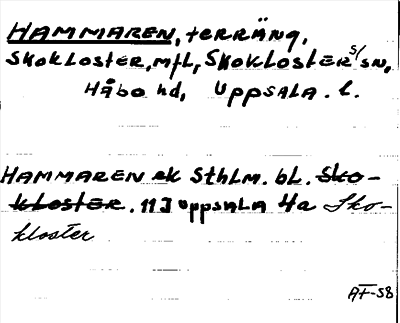 HAMMAREN, terräng,
Skokloster, mfl, Skokloster s/sn,
Håbo hd, Uppsala. l.
HAMMAREN ek Sthlm. bl. Sko-
kloster. 11 I Uppsala 4a Sko-
kloster
AF-58